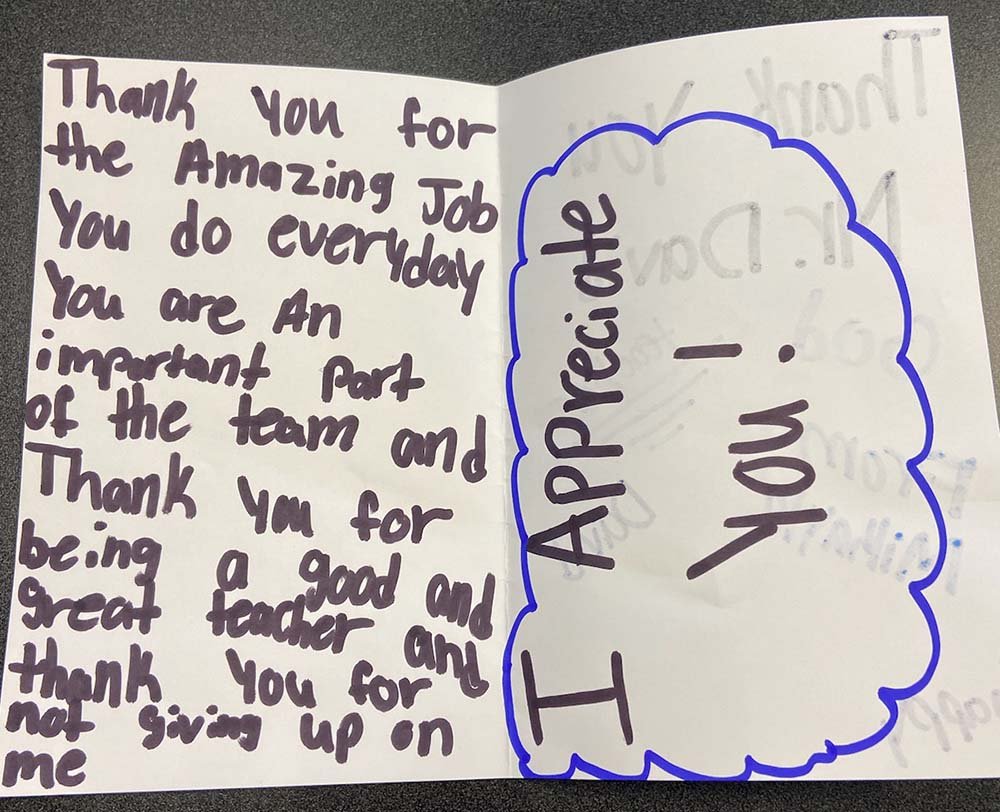 Thank you for
the Amazing Job
You do everyday
You are An
important part
of the team and
Thank you for
being a good and
great teacher and
thank you for
not giving up on
me
I Appreciate
You!
Thank You
Mr.